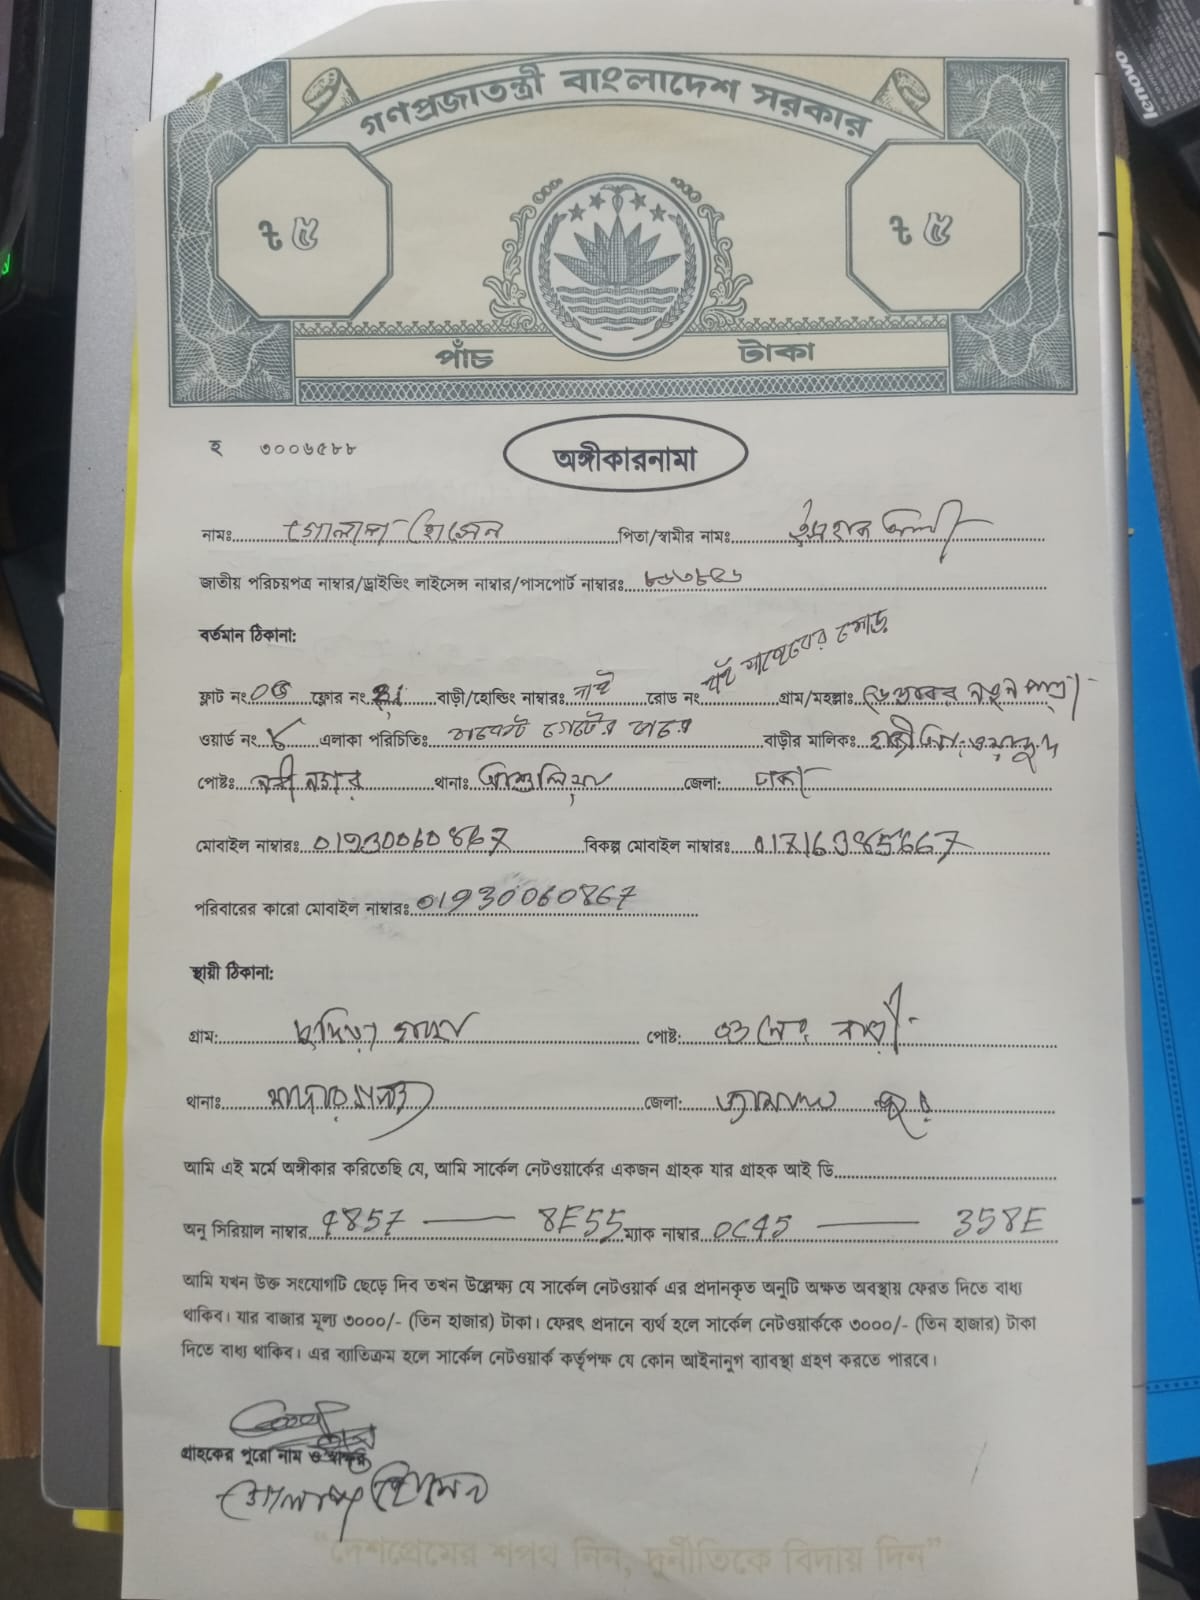 lenovo
গণপ্রজাতন্ত্রী বাংলাদেশ সরকার
৳ ৫ ৳ ৫
পাঁচ টাকা
হ ৩০০৬৫৮৮
অঙ্গীকারনামা
নামঃ গোলাপ হোসেন পিতা/স্বামীর নামঃ
জাতীয় পরিচয়পত্র নাম্বার/ড্রাইভিং লাইসেন্স নাম্বার/পাসপোর্ট নাম্বারঃ
বর্তমান ঠিকানা:
ফ্লাট নং ফ্লোর নং বাড়ী/হোল্ডিং নাম্বারঃ নাই রোড নং গ্রাম/মহল্লাঃ
ওয়ার্ড নং এলাকা পরিচিতিঃ গেটের বাড়ীর মালিকঃ
পোষ্টঃ থানাঃ আশুলিয়া জেলা: ঢাকা
মোবাইল নাম্বারঃ 01930060867 বিকল্প মোবাইল নাম্বারঃ 01716385667
পরিবারের কারো মোবাইল নাম্বারঃ 01930060867
স্থায়ী ঠিকানা:
গ্রাম: পোষ্ট:
থানাঃ মাদারগঞ্জ জেলা: জামালপুর
আমি এই মর্মে অঙ্গীকার করিতেছি যে, আমি সার্কেল নেটওয়ার্কের একজন গ্রাহক যার গ্রাহক আই ডি
অনু সিরিয়াল নাম্বার 4857 — 8E55 ম্যাক নাম্বার 0C45 — 358E
আমি যখন উক্ত সংযোগটি ছেড়ে দিব তখন উল্লেক্ষ্য যে সার্কেল নেটওয়ার্ক এর প্রদানকৃত অনুটি অক্ষত অবস্থায় ফেরত দিতে বাধ্য
থাকিব। যার বাজার মূল্য ৩০০০/- (তিন হাজার) টাকা। ফেরৎ প্রদানে ব্যর্থ হলে সার্কেল নেটওয়ার্ককে ৩০০০/- (তিন হাজার) টাকা
দিতে বাধ্য থাকিব। এর ব্যাতিক্রম হলে সার্কেল নেটওয়ার্ক কর্তৃপক্ষ যে কোন আইনানুগ ব্যাবস্থা গ্রহণ করতে পারবে।
গ্রাহকের পুরো নাম ও স্বাক্ষর
গোলাপ হোসেন
“দেশপ্রেমের শপথ নিন, দুর্নীতিকে বিদায় দিন”